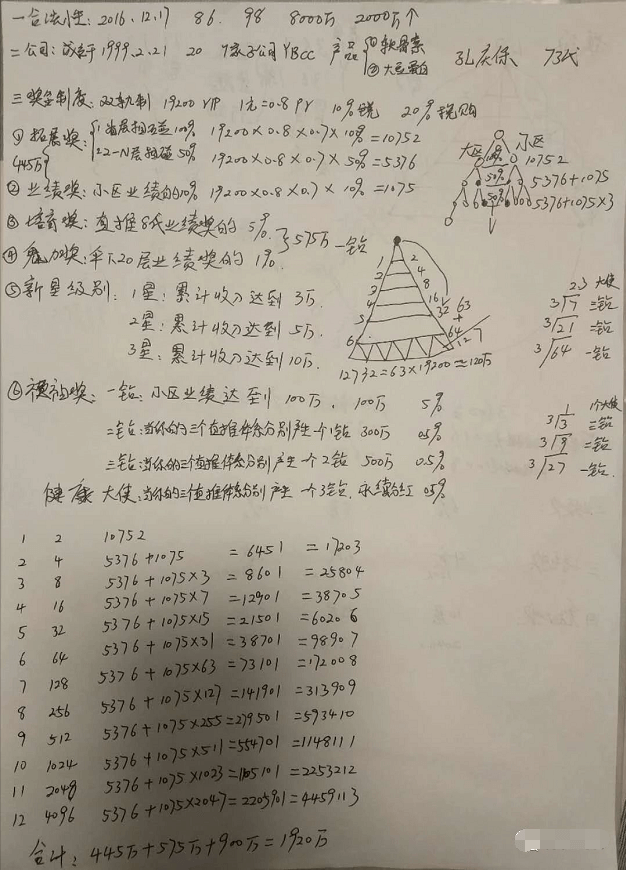 一合法性: 2016.12.17 86. 98 8000万 2000万个
二公司: 成立于1999.2.21 20 9家子公司 YBCC 产品 ①软骨素 孔庆保 73代
②大豆蛋白
三奖金制度: 双轨制 19200 VIP 1元=0.8 PV 10%税 20%税购
①拓展奖: 1 首层相互碰100% 19200×0.8×0.7×10%=10752
445万 2 2-N层相碰 50% 19200×0.8×0.7×50%=5376
大区 小区
100% 10752
50% 5376+1075
50% 5376+1075×3
②业绩奖: 小区业绩的10% 19200×0.8×0.7×10%=1075
③培育奖: 直推8代业绩奖的 5%. 575万 一钻
④ 加奖: 伞下20层业绩奖的 1%.
⑤新星级别: 1星: 累计收入达到 3万.
2星: 累计收入达到 5万.
3星: 累计收入达到10万.
1 2
2 4
3 8
4 16
5 32 63
+
6 64
127
12732=63×19200≈120万
23 大使
3/7 三钻
3/21 二钻
3/64 一钻
⑥ 奖: 一钻: 小区业绩达到 100万. 100万 5%
二钻: 当你的三个直推体系分别产生一个1钻 300万 0.5%
三钻: 当你的三个直推体系分别产生一个2钻 500万 0.5%
健康大使: 当你的三个直推体系分别产生一个3钻. 永续分红 0.5%
1个大使
1
3/3 三钻
3/9 二钻
3/27 一钻.
1 2 10752
2 4 5376+1075 =6451 =17203
3 8 5376+1075×3 =8601 =25804
4 16 5376+1075×7 =12901 =38705
5 32 5376+1075×15 =21501 =60206
6 64 5376+1075×31 =38701 =98907
7 128 5376+1075×63 =73101 =172008
8 256 5376+1075×127 =141901 =313909
9 512 5376+1075×255 =279501 =593410
10 1024 5376+1075×511 =554701 =1148111
11 2048 5376+1075×1023 =1105101 =2253212
12 4096 5376+1075×2047 =2205901 =4459113
合计: 445万+575万+900万=1920万